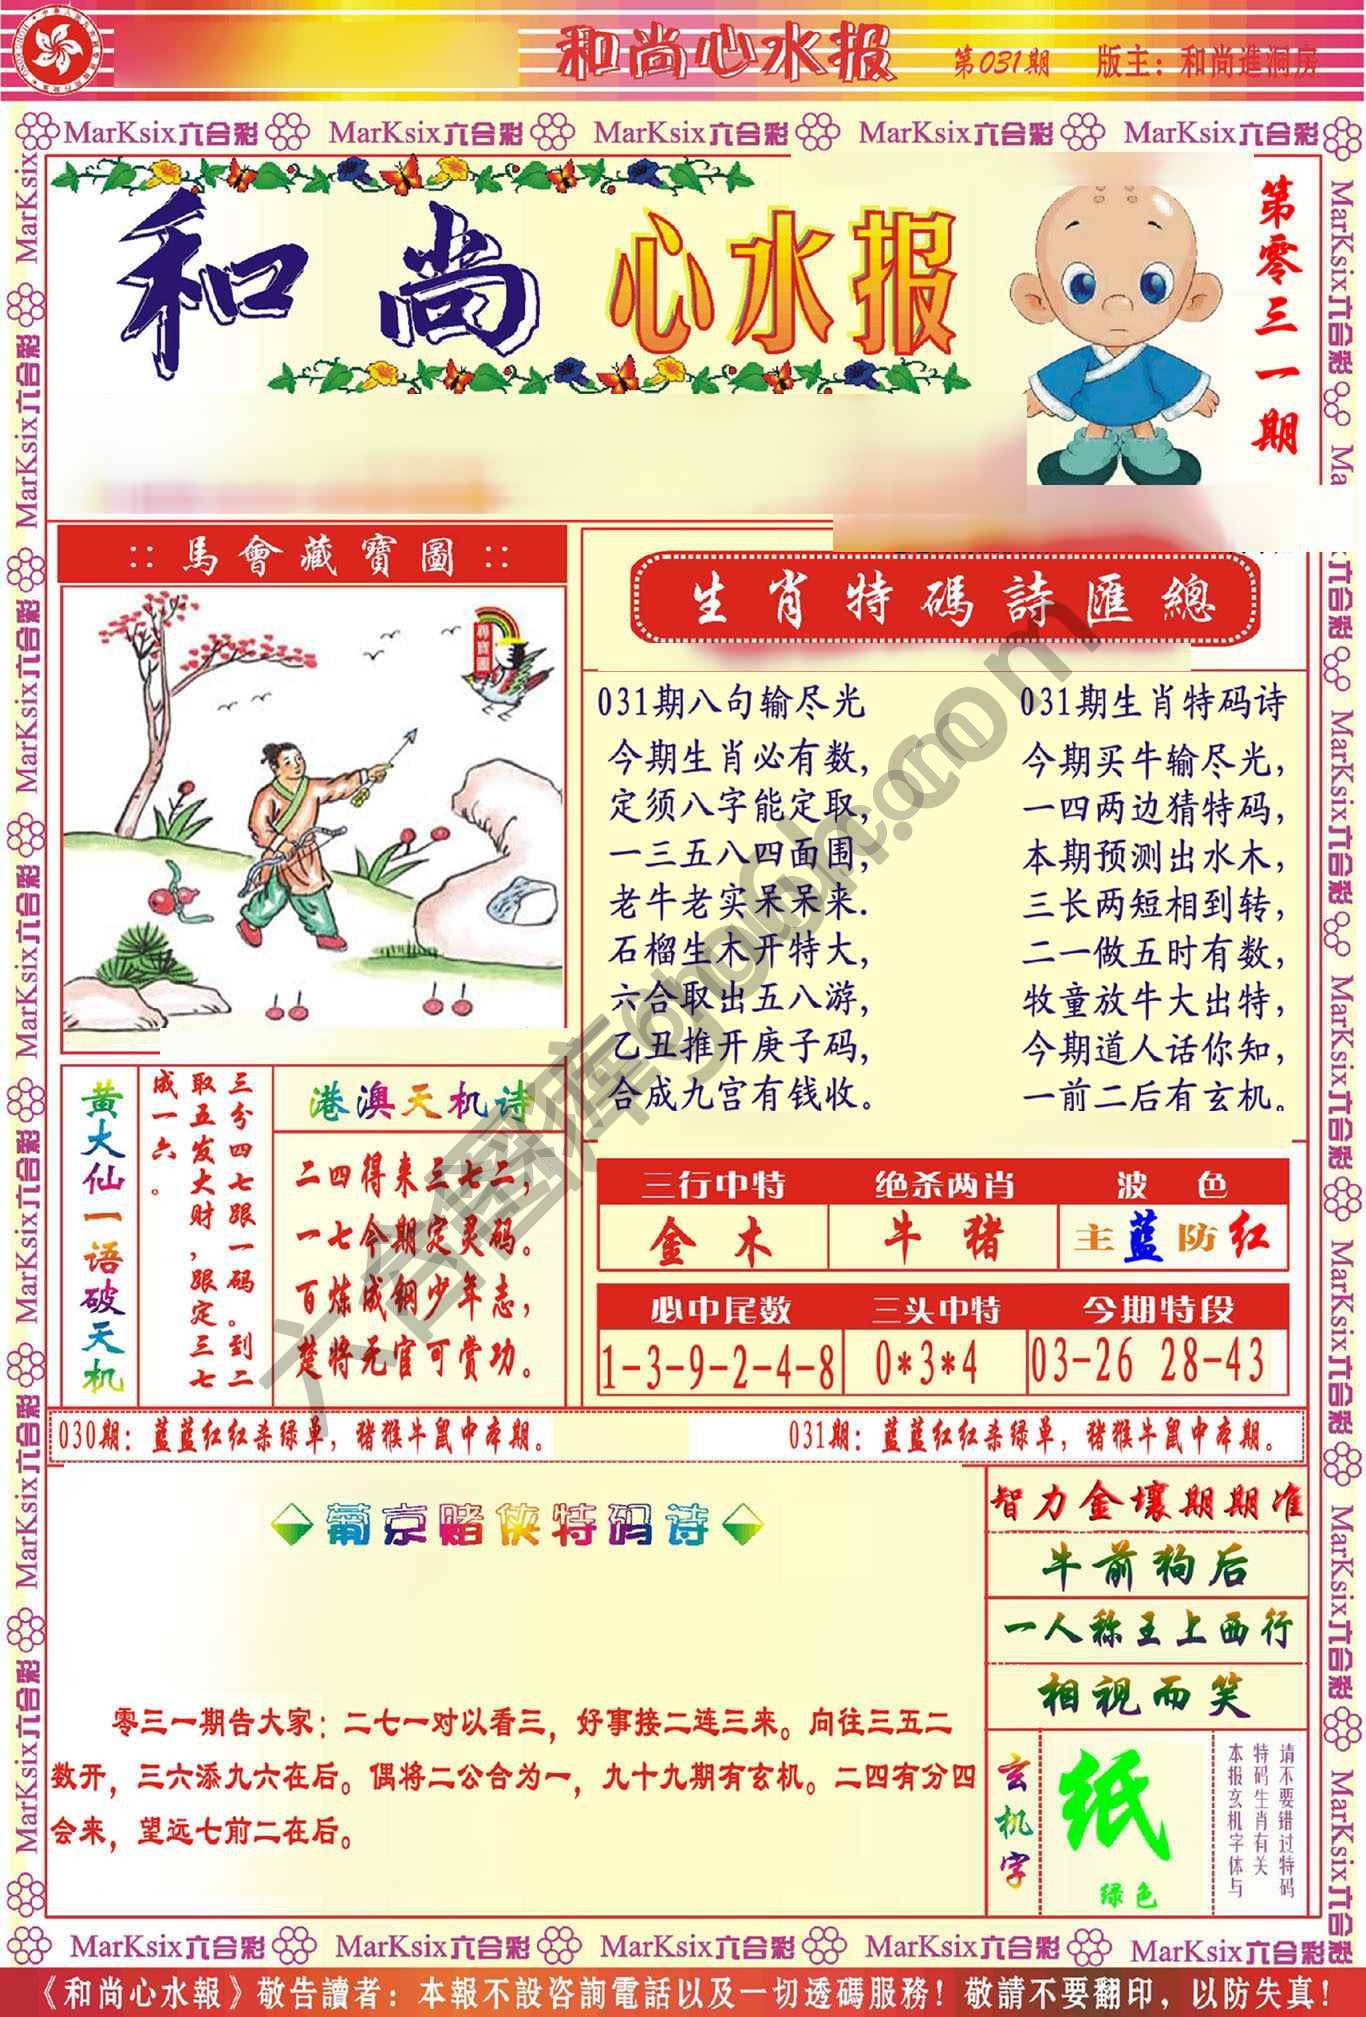 和尚心水报
第031期
版主：和尚進洞房
MarKsix六合彩 MarKsix六合彩 MarKsix六合彩 MarKsix六合彩 MarKsix六合彩
和尚心水报
第零三一期
::馬會藏寶圖::
尋寶圖
生肖特碼詩匯總
031期八句输尽光
今期生肖必有数，
定须八字能定取，
一三五八四面围，
老牛老实呆呆来.
石榴生木开特大，
六合取出五八游，
乙丑推开庚子码，
合成九宫有钱收。
031期生肖特码诗
今期买牛输尽光，
一四两边猜特码，
本期预测出水木，
三长两短相到转，
二一做五时有数，
牧童放牛大出特，
今期道人话你知，
一前二后有玄机。
黄大仙一语破天机
三分四七跟一码。到二
取五发大财，跟定三七
成一六。
港澳天机诗
二四得来三七二，
一七今期定灵码。
百炼成钢少年志，
楚将无官可赏功。
三行中特 绝杀两肖 波 色
金 木 牛 猪 主蓝防红
必中尾数 三头中特 今期特段
1-3-9-2-4-8 0*3*4 03-26 28-43
030期：蓝蓝红红杀绿单，猪猴牛鼠中本期。
031期：蓝蓝红红杀绿单，猪猴牛鼠中本期。
葡京赌侠特码诗
零三一期告大家：二七一对以看三，好事接二连三来。向往三五二
数开，三六添九六在后。偶将二公合为一，九十九期有玄机。二四有分四
会来，望远七前二在后。
智力金壤期期准
牛前狗后
一人称王上西行
相视而笑
玄机字
纸
绿色
请不要错过特码
特码生肖有关
本报玄机字体与
MarKsix六合彩 MarKsix六合彩 MarKsix六合彩 MarKsix六合彩 MarKsix六合彩
《和尚心水報》敬告讀者：本報不設咨詢電話以及一切透碼服務！敬請不要翻印，以防失真！